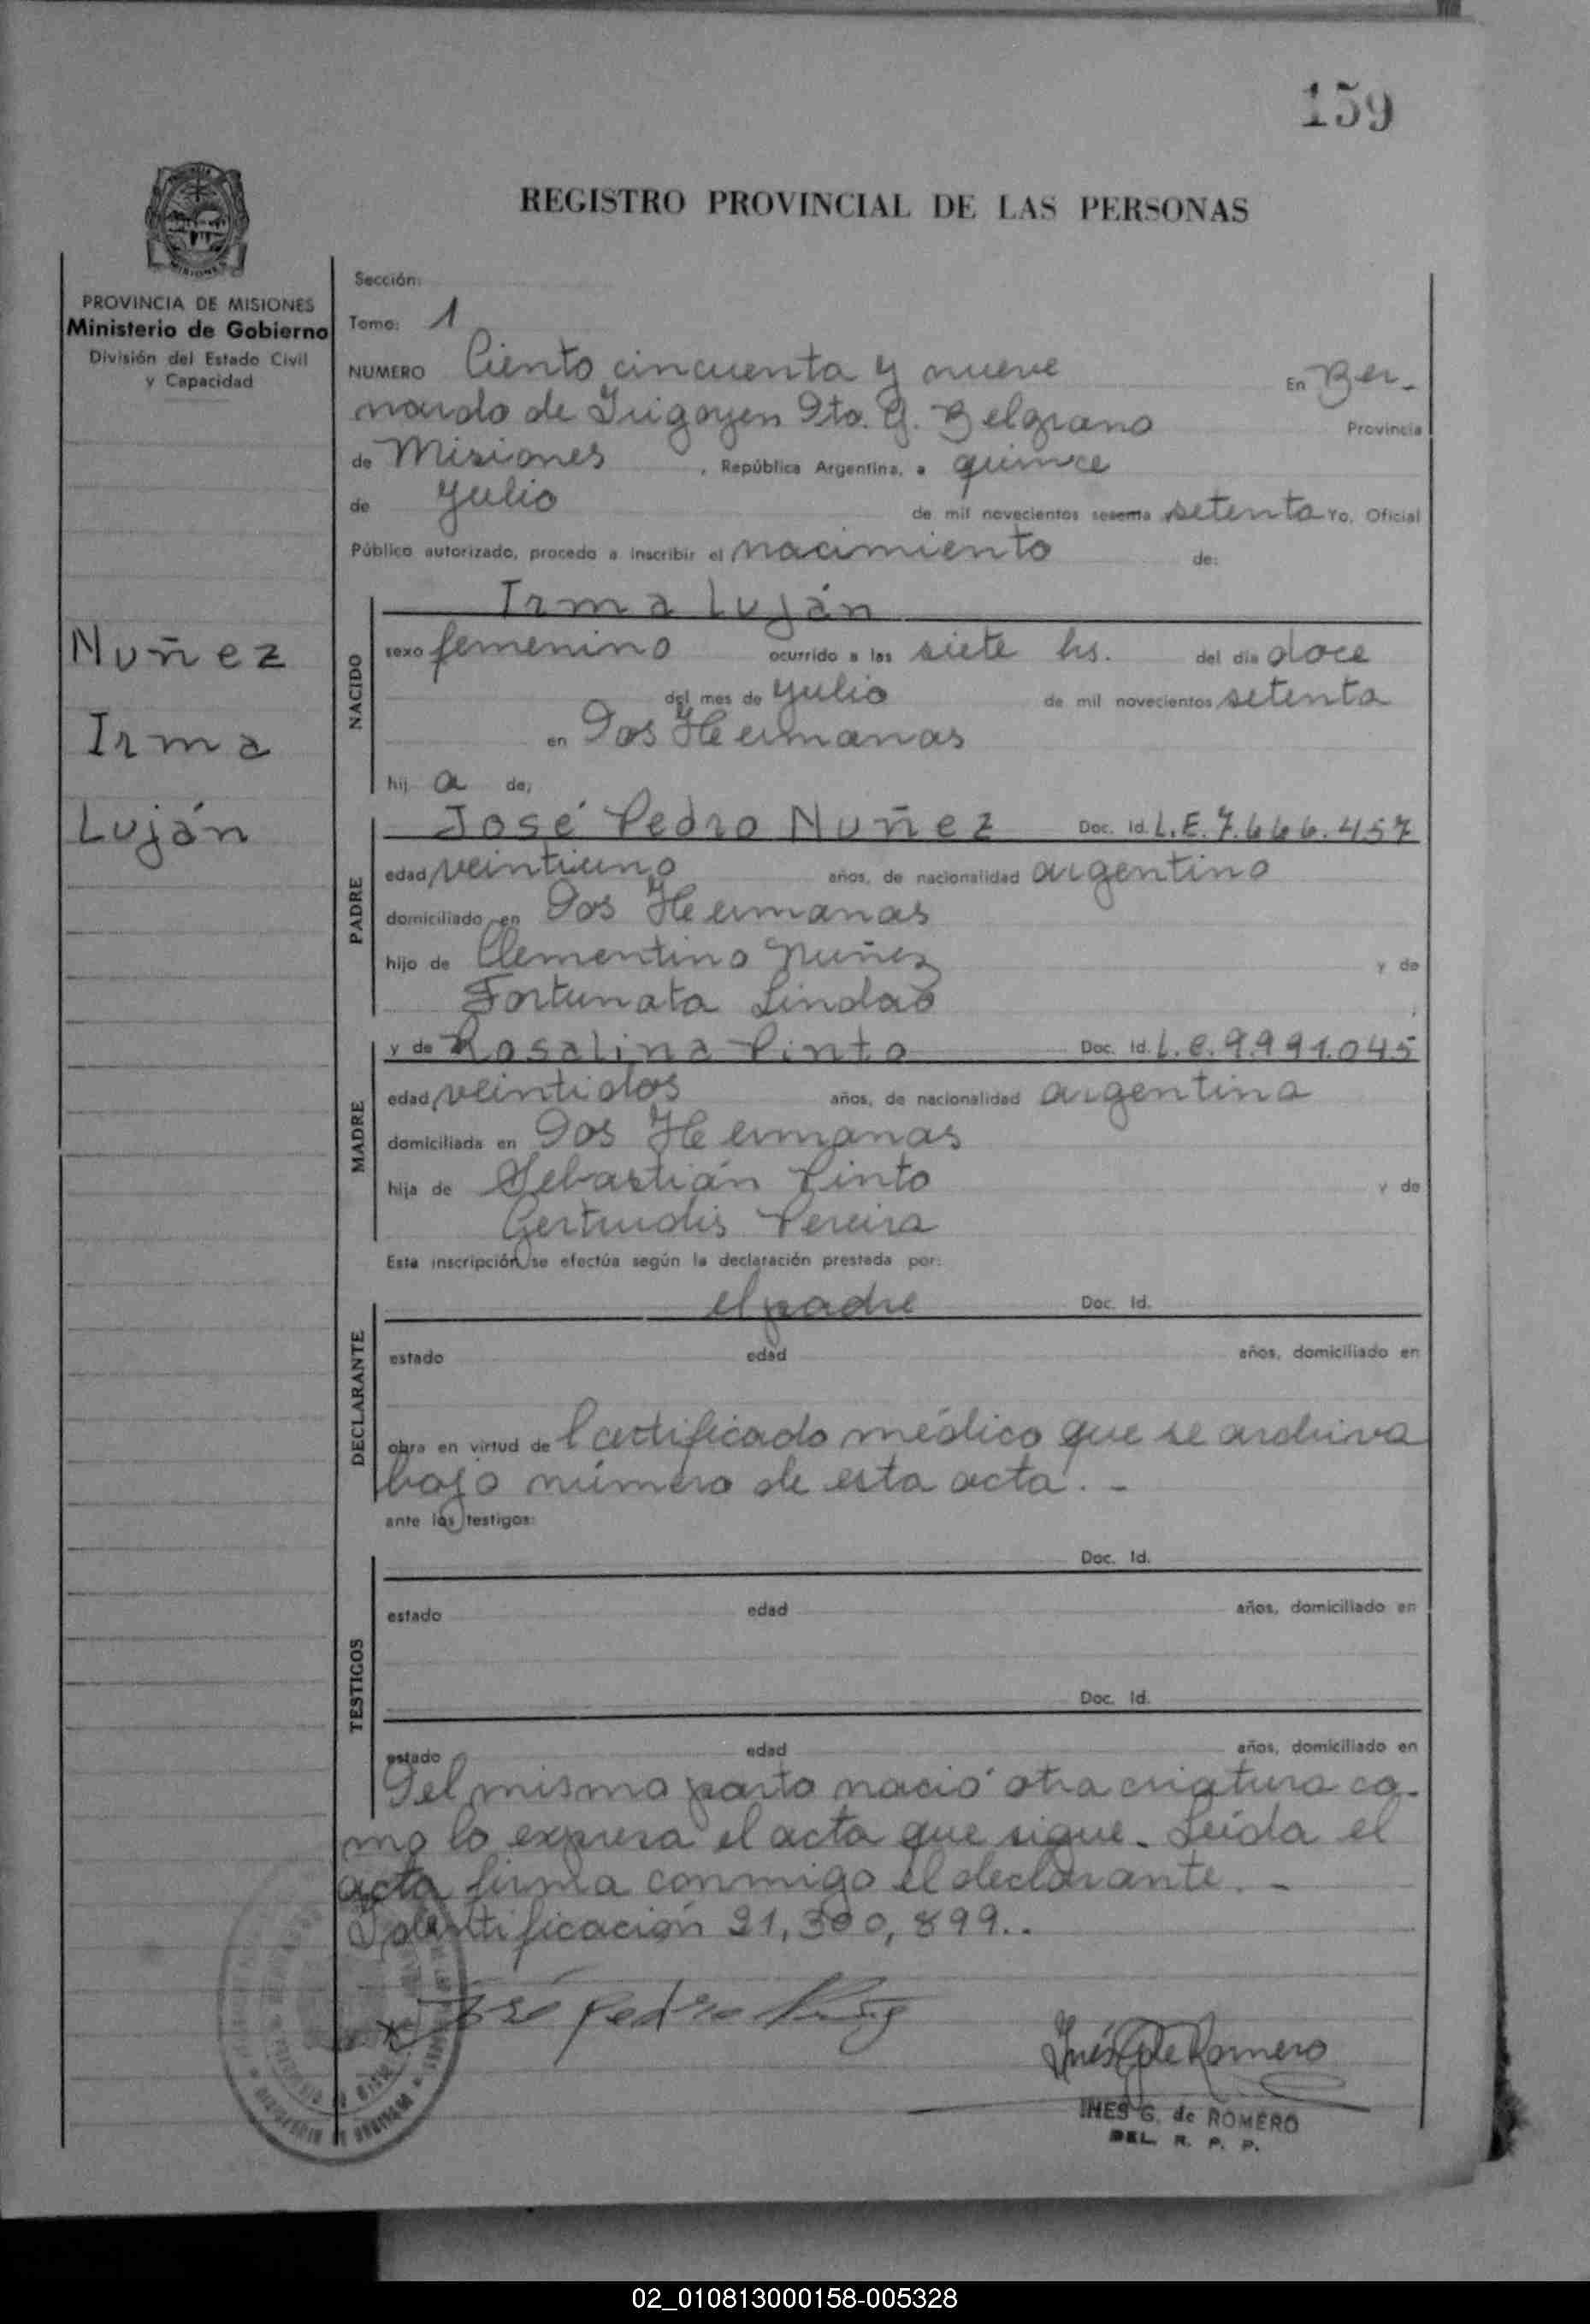 159
REGISTRO PROVINCIAL DE LAS PERSONAS
MISIONES
PROVINCIA DE MISIONES
Ministerio de Gobierno
División del Estado Civil
y Capacidad
Nuñez
Irma
Luján
Sección:
Tomo: 1
NUMERO Ciento cincuenta y nueve En Ber-
nardo de Irigoyen Dto. G. Belgrano Provincia
de Misiones, República Argentina, a quince
de Julio de mil novecientos sesenta setenta Yo, Oficial
Público autorizado, procedo a inscribir el nacimiento de:
NACIDO
Irma Luján
sexo femenino ocurrido a las siete hs. del día doce
del mes de Julio de mil novecientos setenta
en Dos Hermanas
hij a de;
PADRE
José Pedro Nuñez Doc. Id. L.E. 7.666.457
edad veintiuno años, de nacionalidad argentino
domiciliado en Dos Hermanas
hijo de Clementino Nuñez y de
Fortunata Lindao
MADRE
y de Rosalina Pinto Doc. Id. L.C. 9.991.045
edad veintidos años, de nacionalidad argentina
domiciliada en Dos Hermanas
hija de Sebastián Pinto y de
Gertrudis Pereira
Esta inscripción se efectúa según la declaración prestada por:
DECLARANTE
el padre Doc. Id.
estado edad años, domiciliado en
obra en virtud de Certificado médico que se archiva
bajo número de esta acta. -
ante los testigos:
TESTIGOS
Doc. Id.
estado edad años, domiciliado en
Doc. Id.
estado edad años, domiciliado en
Del mismo parto nació otra criatura co-
mo lo expresa el acta que sigue. Leída el
acta firma conmigo el declarante. -
Identificación 21,300,899..
José Pedro Nuñez
Inés G de Romero
INES G. de ROMERO
DEL. R. P. P.
02_010813000158-005328